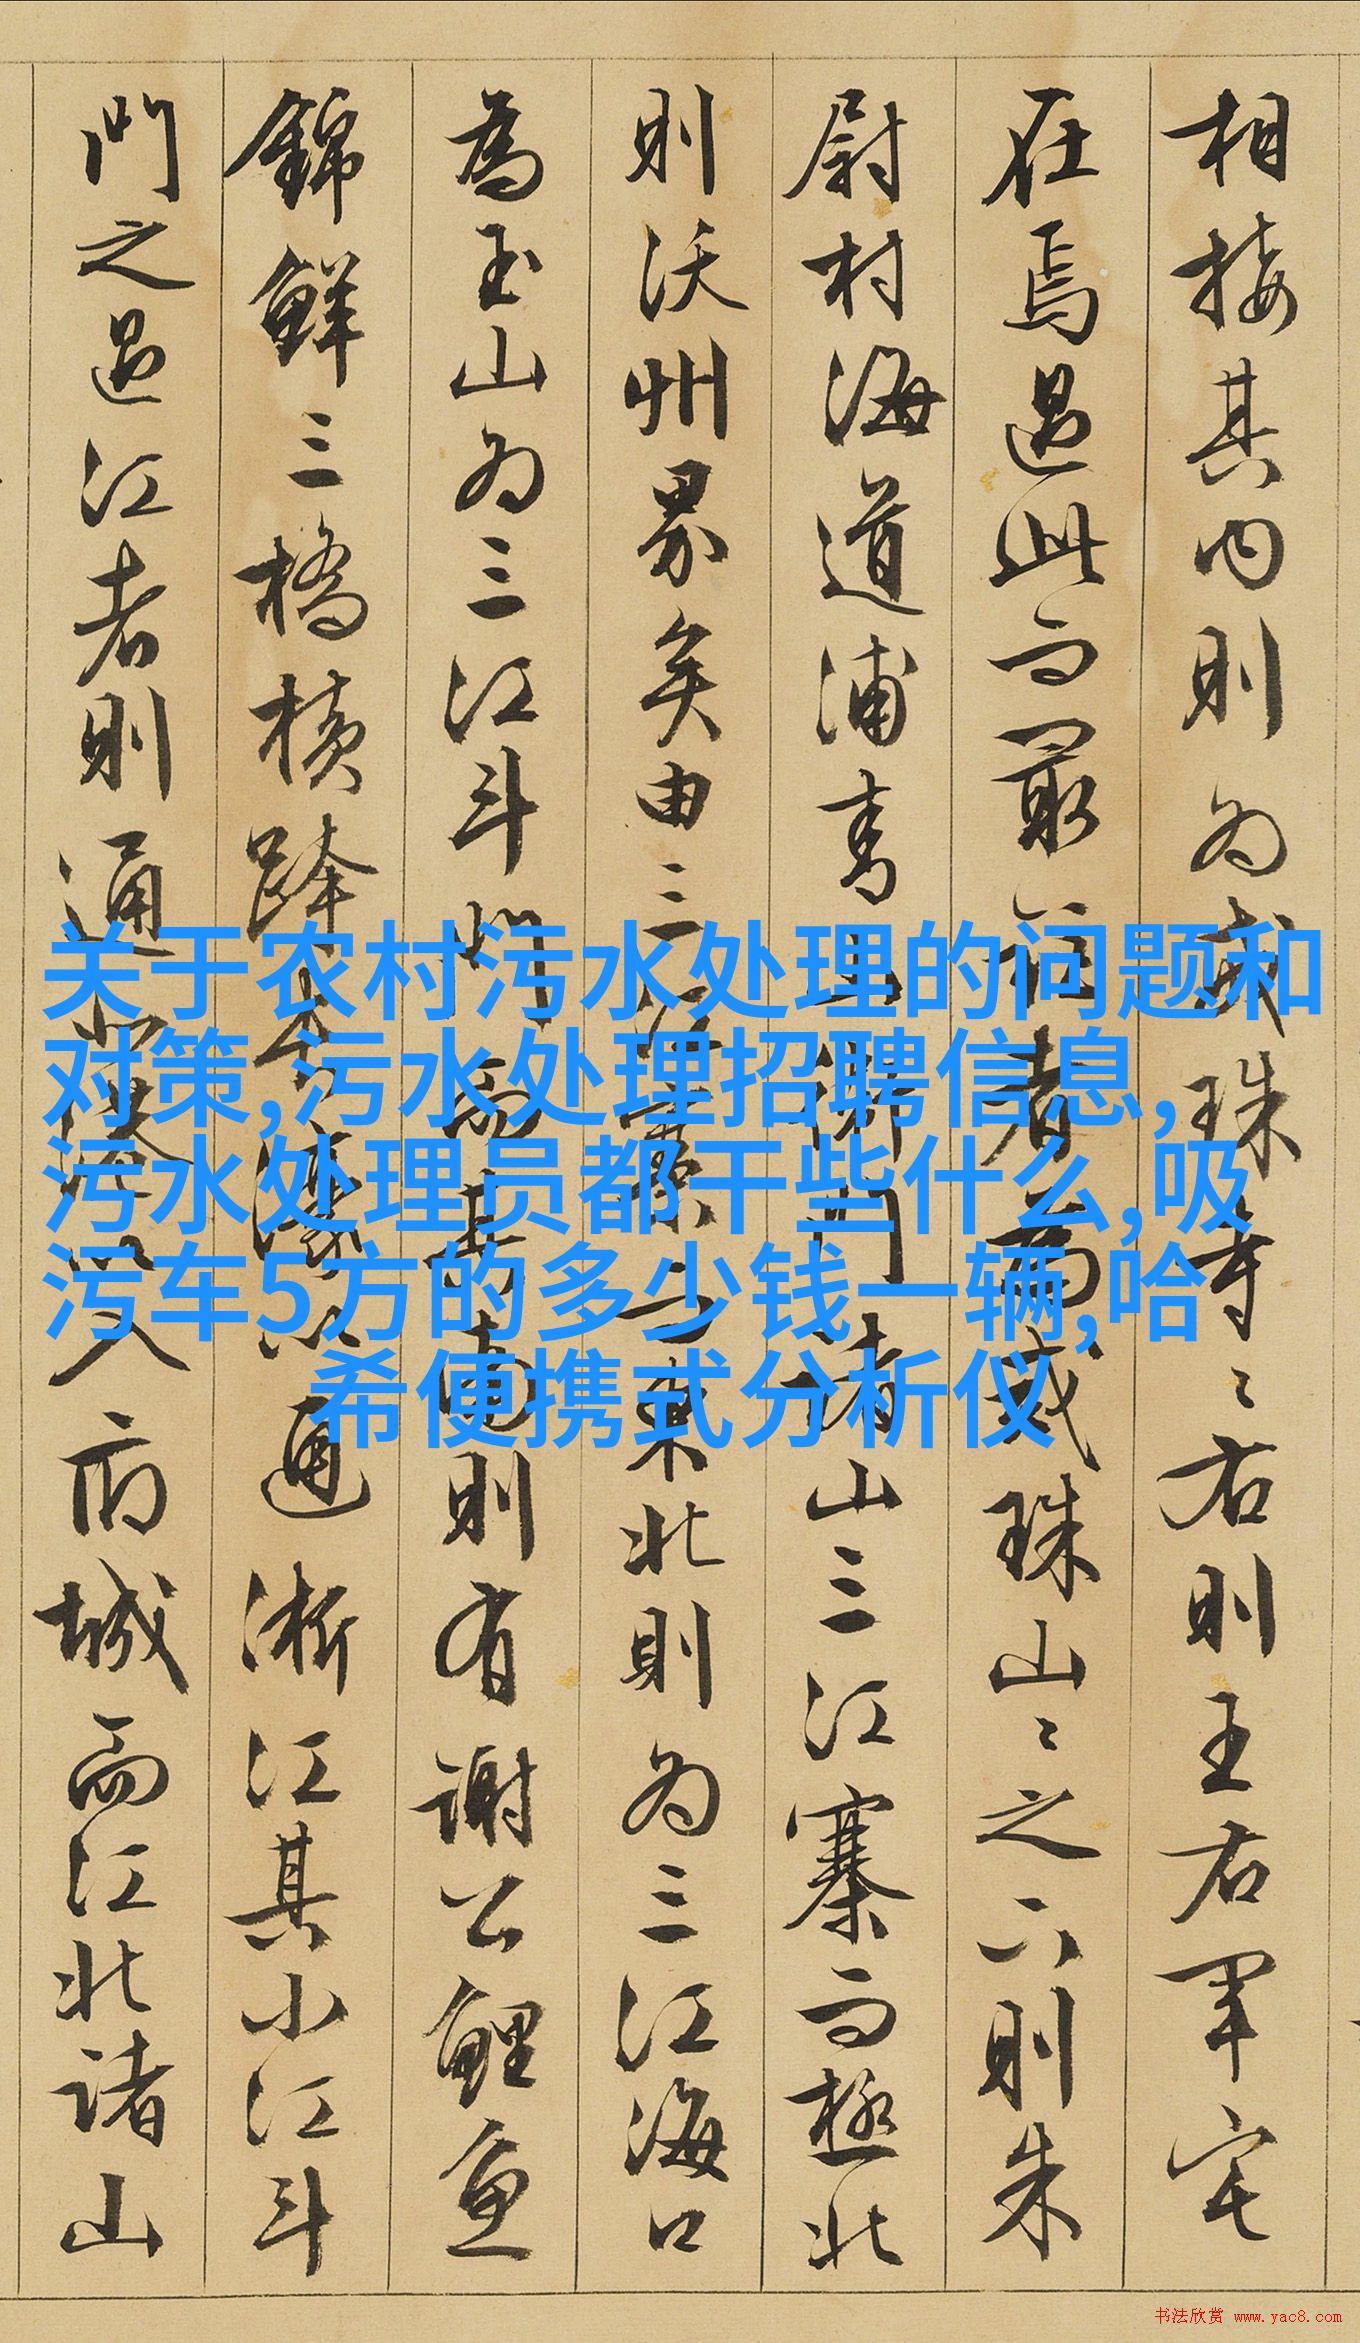 相接其内則為戒珠寺〻右則王右軍宅
在焉過此而最近者為戒珠山〻之下則朱
尉村海道浦青山湖門諸山三江寨而極北
則沃州界矣由三江東北則為三江海口
為玉山為三江斗門而其南則有謝公鯉魚
錦鮮三橋橫跨通淅江其小江斗
門之過江者則通入府城而江北諸山
关于农村污水处理的问题和
对策,污水处理招聘信息,
污水处理员都干些什么,吸
污车5方的多少钱一辆,哈
希便携式分析仪
书法欣赏 www.yac8.com